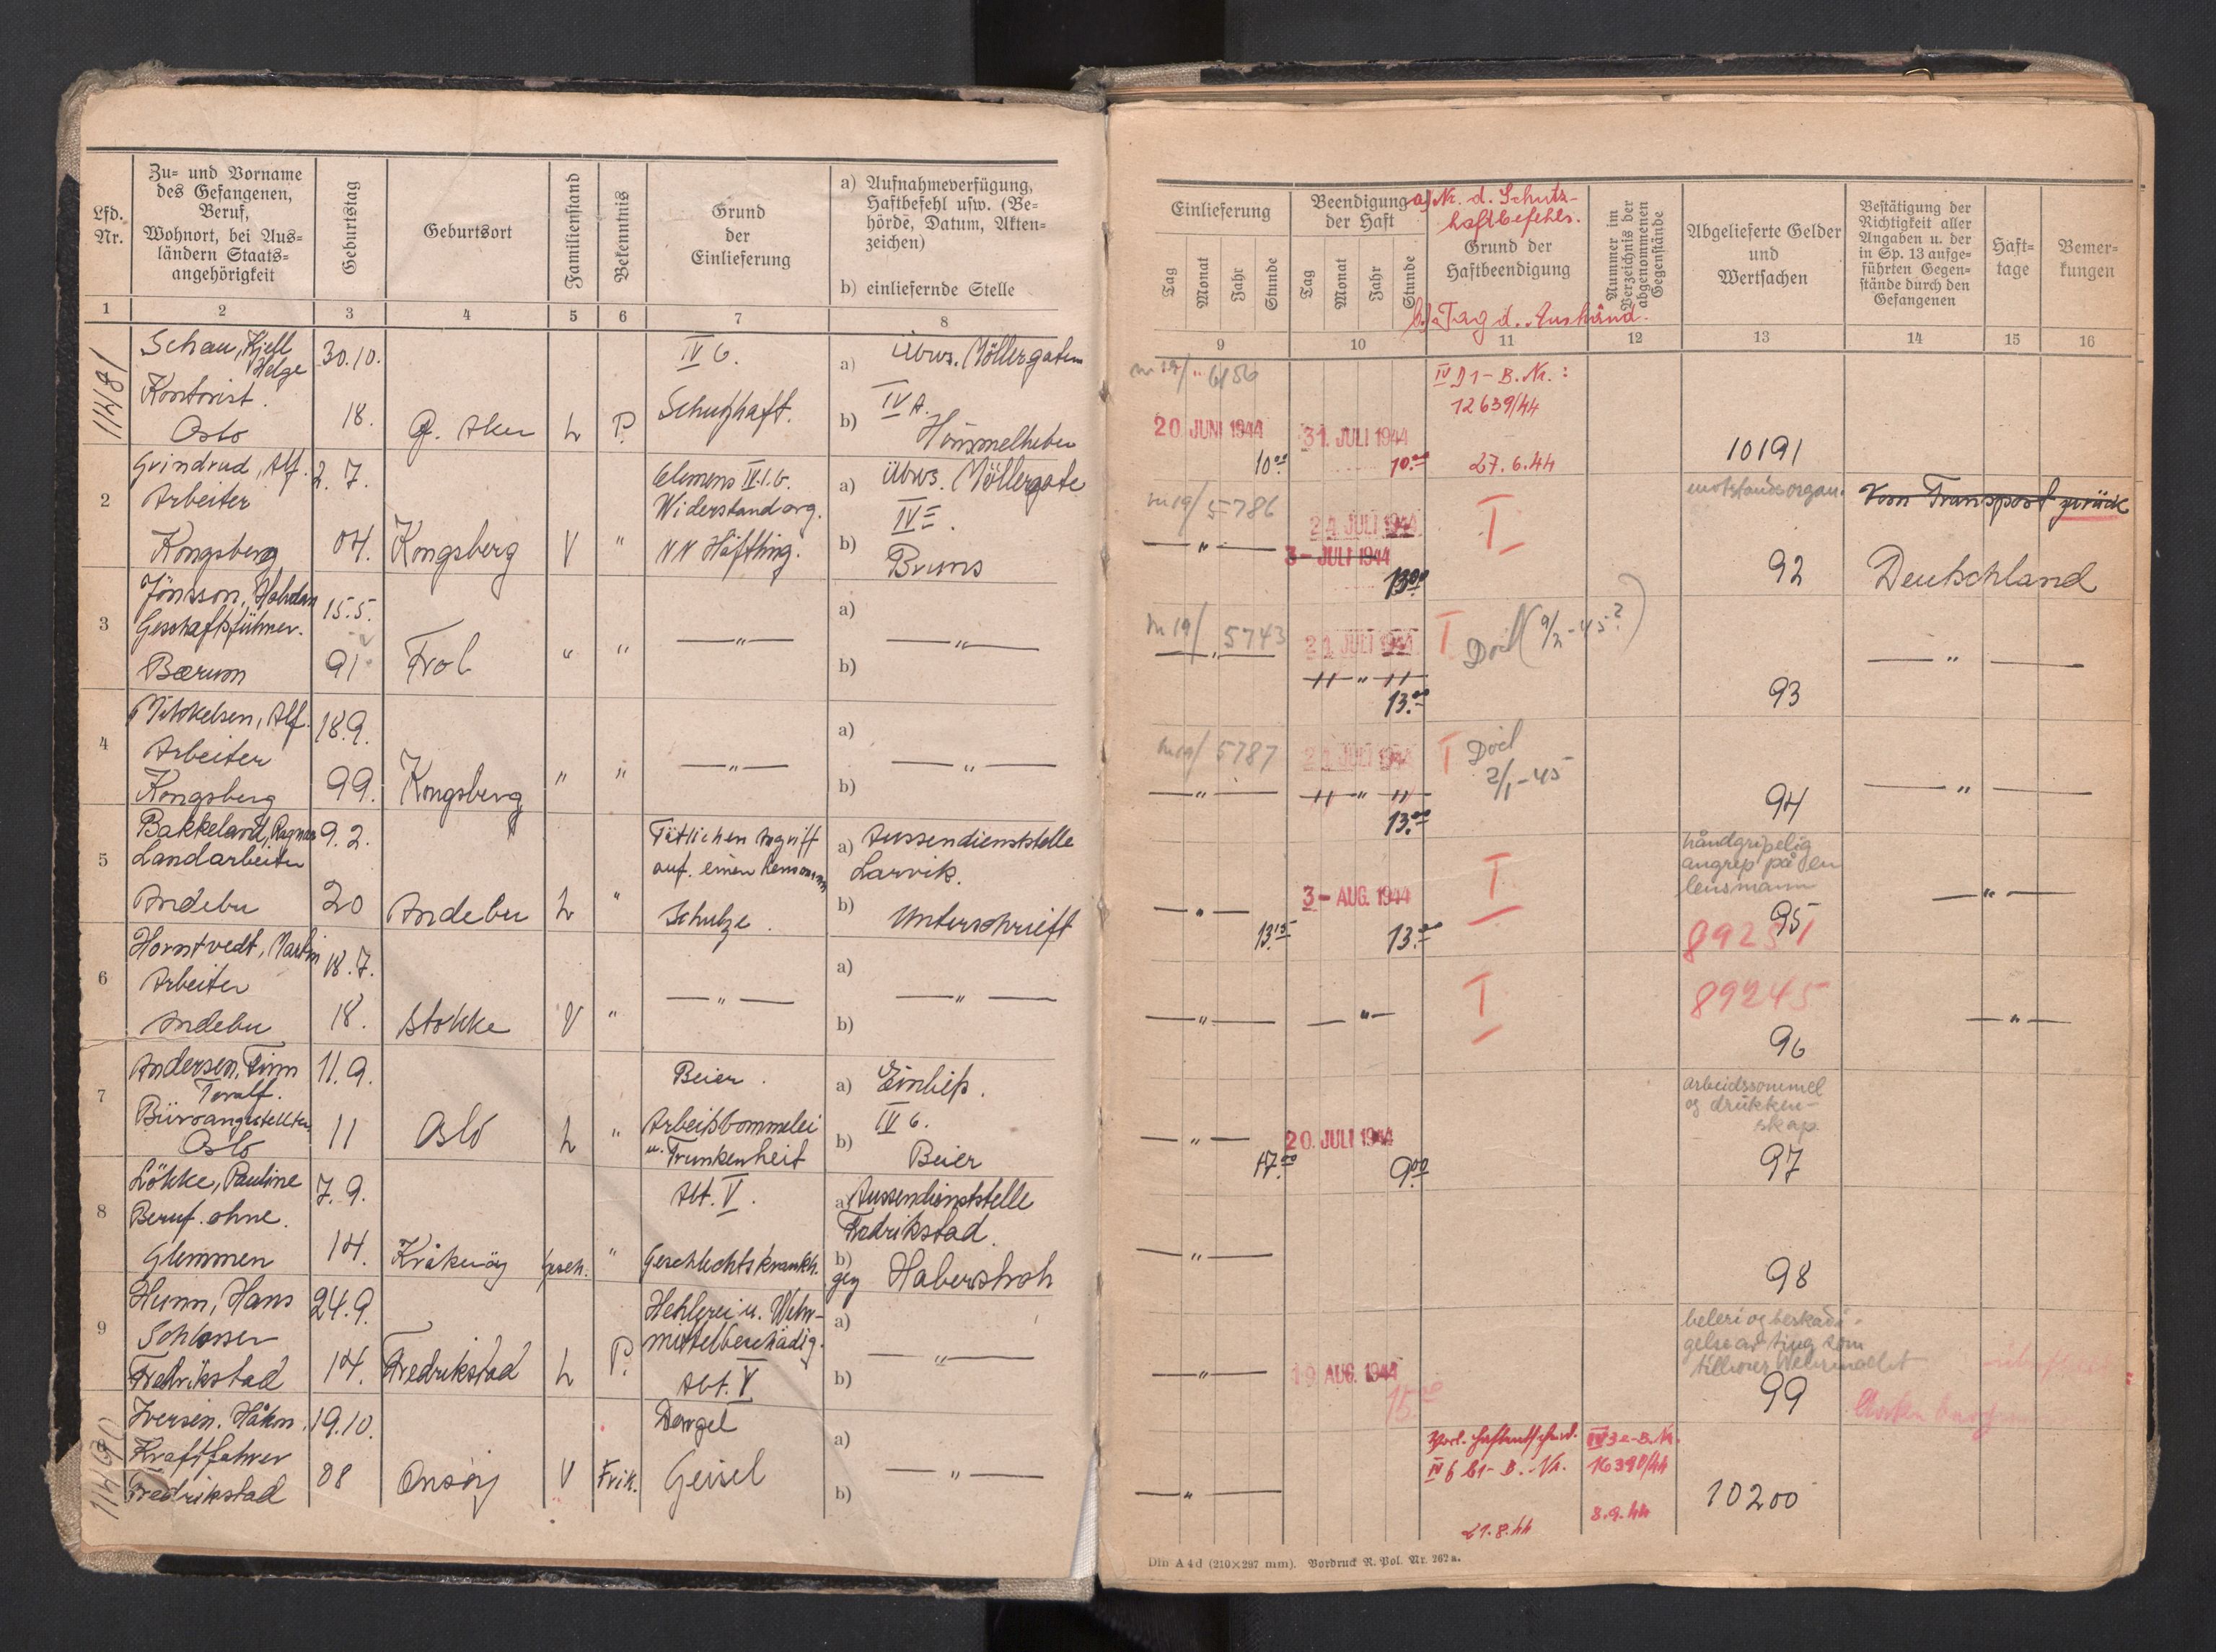 Lfd. Nr.
Zu= und Vorname
des Gefangenen,
Beruf,
Wohnort, bei Aus=
ländern Staats=
angehörigkeit
Geburtstag
Geburtsort
Familienstand
Bekenntnis
Grund
der
Einlieferung
a) Aufnahmeverfügung,
Haftbefehl usw. (Be=
hörde, Datum, Akten=
zeichen)
b) einliefernde Stelle
1 2 3 4 5 6 7 8
11481
Schau, Kjell
Helge
Kontorist.
Oslo
30.10.
18.
G. Aker
L
P.
IV 6.
Schutzhaft.
a) Übws. Möllergaten
IV A.
b) Hömmelheber
2
Grindrud, Alf.
Arbeiter
Kongsberg
2. 7.
04.
Kongsberg
V
"
Clemens IV.1.b.
Widerstandorg.
NN Häftling.
a) Übws. Möllergate
IV
b) Bruns
3
Jönsson, Halvdan
Geschäftsführer.
Bærum
15.5.
91
Frol
"
"
— " —
a)
— " —
b)
4
Mikkelsen, Alf.
Arbeiter
Kongsberg
18.9.
99.
Kongsberg
"
"
— " —
a)
— " —
b)
5
Bakkeland, Ragnar
Landarbeiter
Andebu
9. 2.
20
Andebu
L
"
Tätlichen Angriff
auf. einen Lensmann
Schulze.
a) Aussendienststelle
Larvik.
b) Unterschrieft
6
Hornstvedt, Martin
Arbeiter
Andebu
18.7.
18.
Stokke
V
"
— " —
a)
— " —
b)
7
Andersen, Finn
Toralf.
Büroangestellter
Oslo
11.9.
11
Oslo
L
"
Beier.
Arbeitsbommelei
u. Trunkenheit
a) Einlief.
IV 6.
b) Beier
8
Lökke, Pauline
Beruf. ohne.
Glemmen
7. 9.
14.
Kråkeröy
gesch.
"
Abt. V.
Geschlechtskrankh.
a) Aussendienststelle
Fredrikstad.
b)
gez Haberstroh
9
Hunn, Hans
Schlosser
Fredrikstad
24.9.
14.
Fredrikstad
L
P.
Hehlerei u. Wehr-
mittelbeschädig.
Abt. V
a)
— " —
b)
11490
Iversen. Håkon.
Kraftfahrer
Fredrikstad
19.10.
08
Onsöy
V
Frik.
Dorgel
Geisel
a)
— " —
b)
Einlieferung
Tag Monat Jahr Stunde
Beendigung
der Haft
Tag Monat Jahr Stunde
a) Nr. d. Schutz-
haftbefehls.
Grund der
Haftbeendigung
b.) Tag d. Aushänd.
Nummer im
Verzeichnis der
abgenommenen
Gegenstände
Abgelieferte Gelder
und
Wertsachen
Bestätigung der
Richtigkeit aller
Angaben u. der
in Sp. 13 aufge=
führten Gegen=
stände durch den
Gefangenen
Haft=
tage
Bemer=
kungen
9 10 11 12 13 14 15 16
m 19/ " 6156
20. JUNI 1944
10.00
31. JULI 1944
10.00
IV D1 - B. Nr.:
12639/44
27.6.44
10191
m 19/ 5786
— " —
24. JULI 1944
3 - JULI 1944
13.00
T
motstandsorgan.
92
Vom Transport zurück
Deutschland
m 19/ 5743
— " —
24. JULI 1944
— " —
13.00
T
Död (9/2-45?)
93
— " —
m 19/ 5787
— " —
24. JULI 1944
— " —
13.00
T
Död
2/1-45
94
— " —
— " —
13.15
3 - AUG. 1944
13.00
T
håndgripelig
angrep på en
lensmann
95
89251
— " —
— " —
— " —
T
89245
96
— " —
— " —
17.00
20. JULI 1944
9.00
arbeidssommel
og drukken-
skap.
97
— " —
98
— " —
19. AUG. 1944
15.00
heleri og beskadi-
gelse av ting som
tilhører Wehrmacht
99
— " —
Vorl. Haftentscheid.
IV 6 b1 - B. - Nr.
21.8.44
IV 3a - B. Nr.
16390/44
8.9.44
10200
Din A 4d (210×297 mm). Vordruck R. Pol. Nr. 262a.